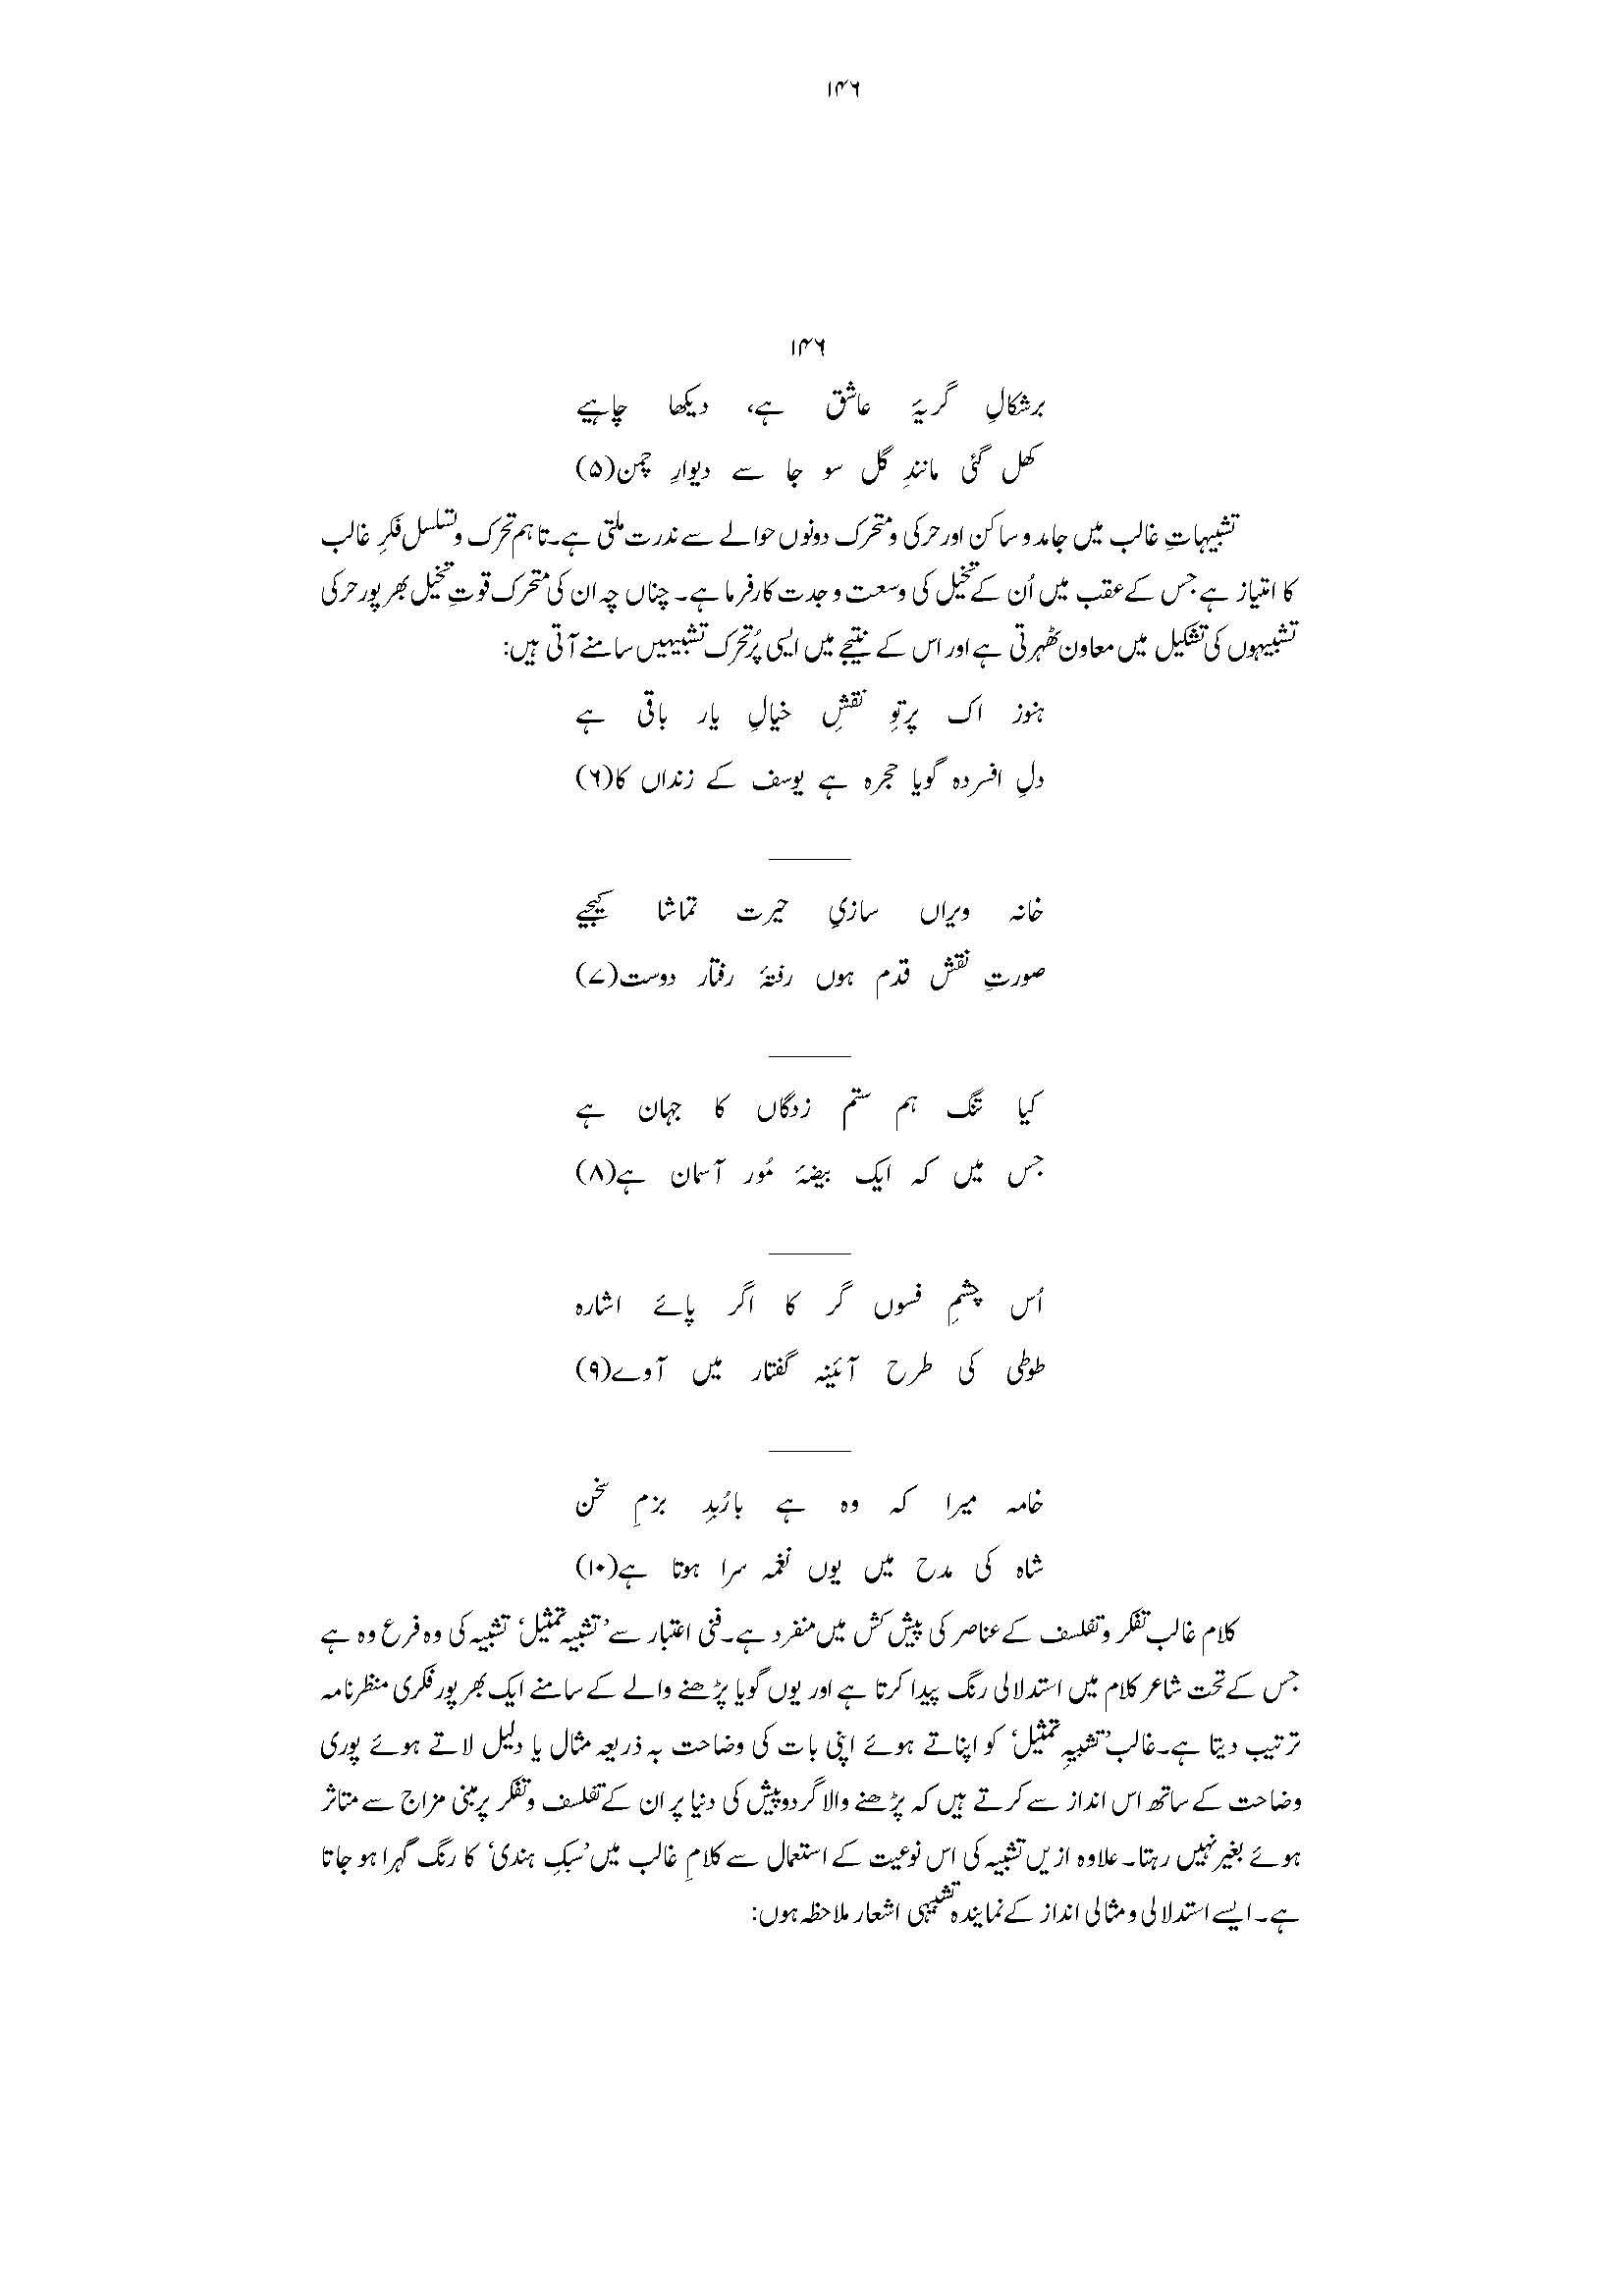 ۱۴۶
۱۴۶
برشکالِ گریۂ عاشق ہے، دیکھا چاہیے
کھل گئی مانندِ گل سو جا سے دیوارِ چمن(۵)
تشبیہاتِ غالب میں جامد و ساکن اور حرکی و متحرک دونوں حوالے سے ندرت ملتی ہے۔تاہم تحرک و تسلسل فکرِ غالب
کا امتیاز ہے جس کے عقب میں اُن کے تخیل کی وسعت و جدت کارفرما ہے۔ چناں چہ ان کی متحرک قوتِ تخیل بھرپور حرکی
تشبیہوں کی تشکیل میں معاون ٹھہرتی ہے اور اس کے نتیجے میں ایسی پُر تحرک تشبیہیں سامنے آتی ہیں:
ہنوز اک پرتوِ نقشِ خیالِ یار باقی ہے
دلِ افسردہ گویا حجرہ ہے یوسف کے زنداں کا(۶)
خانہ ویراں سازیِ حیرت تماشا کیجیے
صورتِ نقش قدم ہوں رفتۂ رفتار دوست(۷)
کیا تنگ ہم ستم زدگاں کا جہان ہے
جس میں کہ ایک بیضۂ مُور آسمان ہے(۸)
اُس چشمِ فسوں گر کا اگر پائے اشارہ
طوطی کی طرح آئینہ گفتار میں آوے(۹)
خامہ میرا کہ وہ ہے بارُبدِ بزمِ سخن
شاہ کی مدح میں یوں نغمہ سرا ہوتا ہے(۱۰)
کلام غالب تفکر و تفلسف کے عناصر کی پیش کش میں منفرد ہے۔فنی اعتبار سے ’تشبیہ تمثیل‘ تشبیہ کی وہ فرع وہ ہے
جس کے تحت شاعر کلام میں استدلالی رنگ پیدا کرتا ہے اور یوں گویا پڑھنے والے کے سامنے ایک بھرپور فکری منظرنامہ
ترتیب دیتا ہے۔غالب ’تشبیہِ تمثیل‘ کو اپناتے ہوئے اپنی بات کی وضاحت بہ ذریعہ مثال یا دلیل لاتے ہوئے پوری
وضاحت کے ساتھ اس انداز سے کرتے ہیں کہ پڑھنے والا گرد و پیش کی دنیا پر ان کے تفلسف و تفکر پر مبنی مزاج سے متاثر
ہوئے بغیر نہیں رہتا۔ علاوہ ازیں تشبیہ کی اس نوعیت کے استعمال سے کلامِ غالب میں ’سبکِ ہندی‘ کا رنگ گہرا ہو جاتا
ہے۔ ایسے استدلالی و مثالی انداز کے نمایندہ تشبیہی اشعار ملاحظہ ہوں: